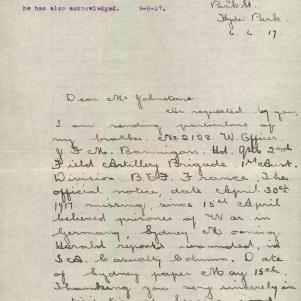 he has also acknowledged. 9-6-17.
Park St.
Hyde Park
6. 6. 17.
Dear Mr Johnstone
As requested by you,
I am sending particulars of
my brother No 2128. W. Officer
J. F. M. Bannigan. Hd. Qrs 2nd
Field Artillery Brigade. 1st Aust.
Division B.E.F. France. The
official notice, date April 30th
1917. missing, since 15th April
believed prisoner of War in
Germany, Sydney Morning
Herald reports wounded, in
S.A. Casualty Column. Date
of Sydney paper May 15th.
Thanking you very sincerely in